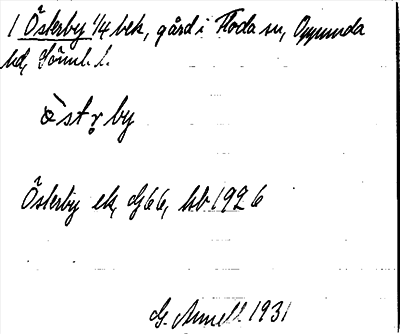 1 Österby 1/4 hek, gård i Floda sn, Oppunda
hd, Sörml. l.
òstr̥by
Österby ek, G 66, hb 1926
G. Annell 1931